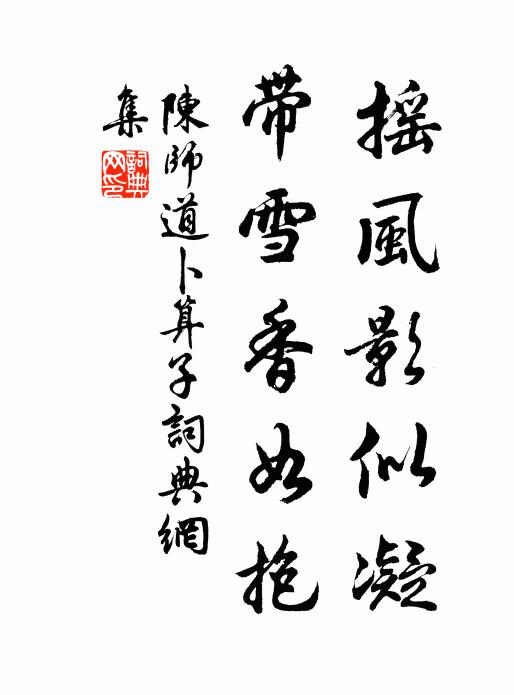 摇風影似凝
带雪香如抱
陳師道卜算子詞典網
集
詞典網印